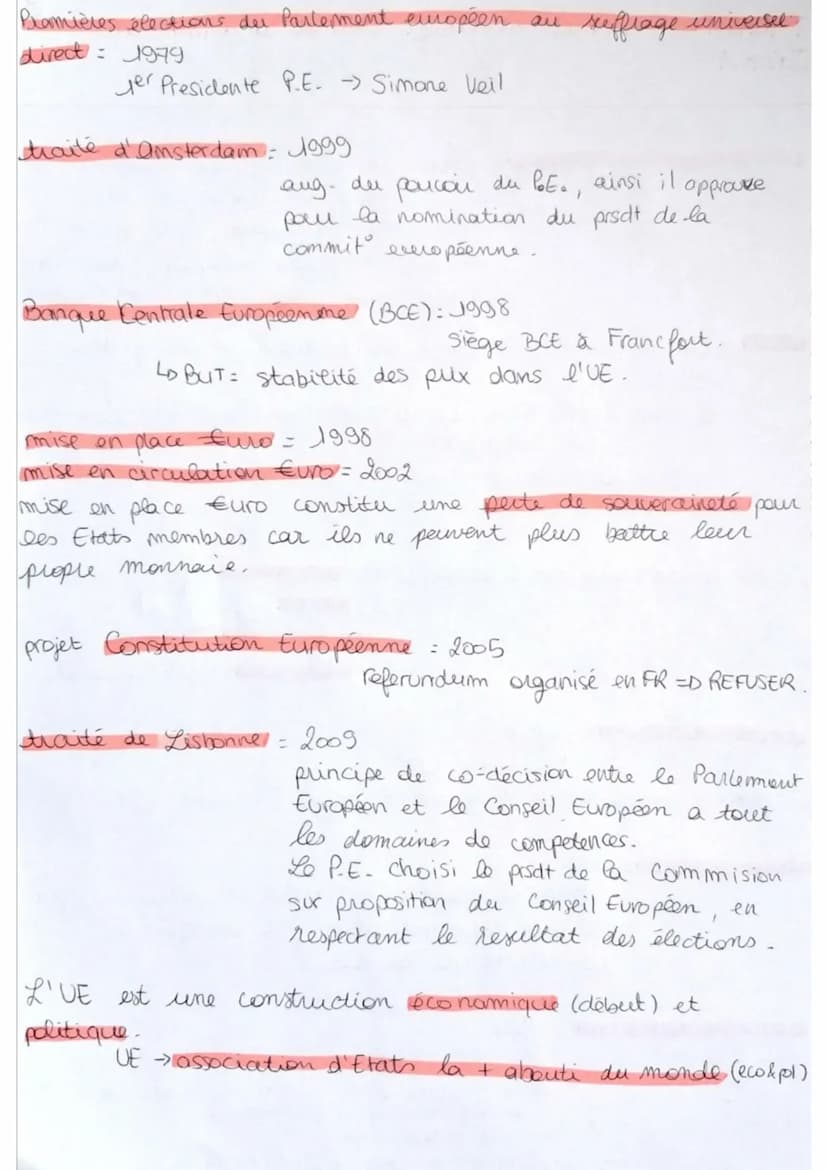 Premières élections du Parlement européen au suffrage universel
direct : 1979
1er Presidente P.E. → Simone Veil
traité d'Amsterdam : 1999
aug. du pouvoir du P.E., ainsi il approuve
pour la nomination du prsdt de la
commit° européenne.
Banque Centrale Européenne (BCE) : 1998
Siège BCE à Francfort.
↳ BUT = stabilité des prix dans l'UE.
mise en place €uro = 1998
mise en circulation €uro = 2002
mise en place €uro constitu une perte de souveraineté pour
les Etats membres car ils ne peuvent plus battre leur
propre monnaie.
projet Constitution Européenne : 2005
referundum organisé en FR => REFUSER.
traité de Lisbonne = 2009
principe de co-décision entre le Parlement
Européen et le Conseil Européen a tout
les domaines de competences.
Le P.E. choisi le prsdt de la Commision
sur proposition du Conseil Européen, en
respectant le resultat des élections.
L'UE est une construction économique (début) et
politique.
UE → association d'Etats la + abouti du monde (eco & pol)